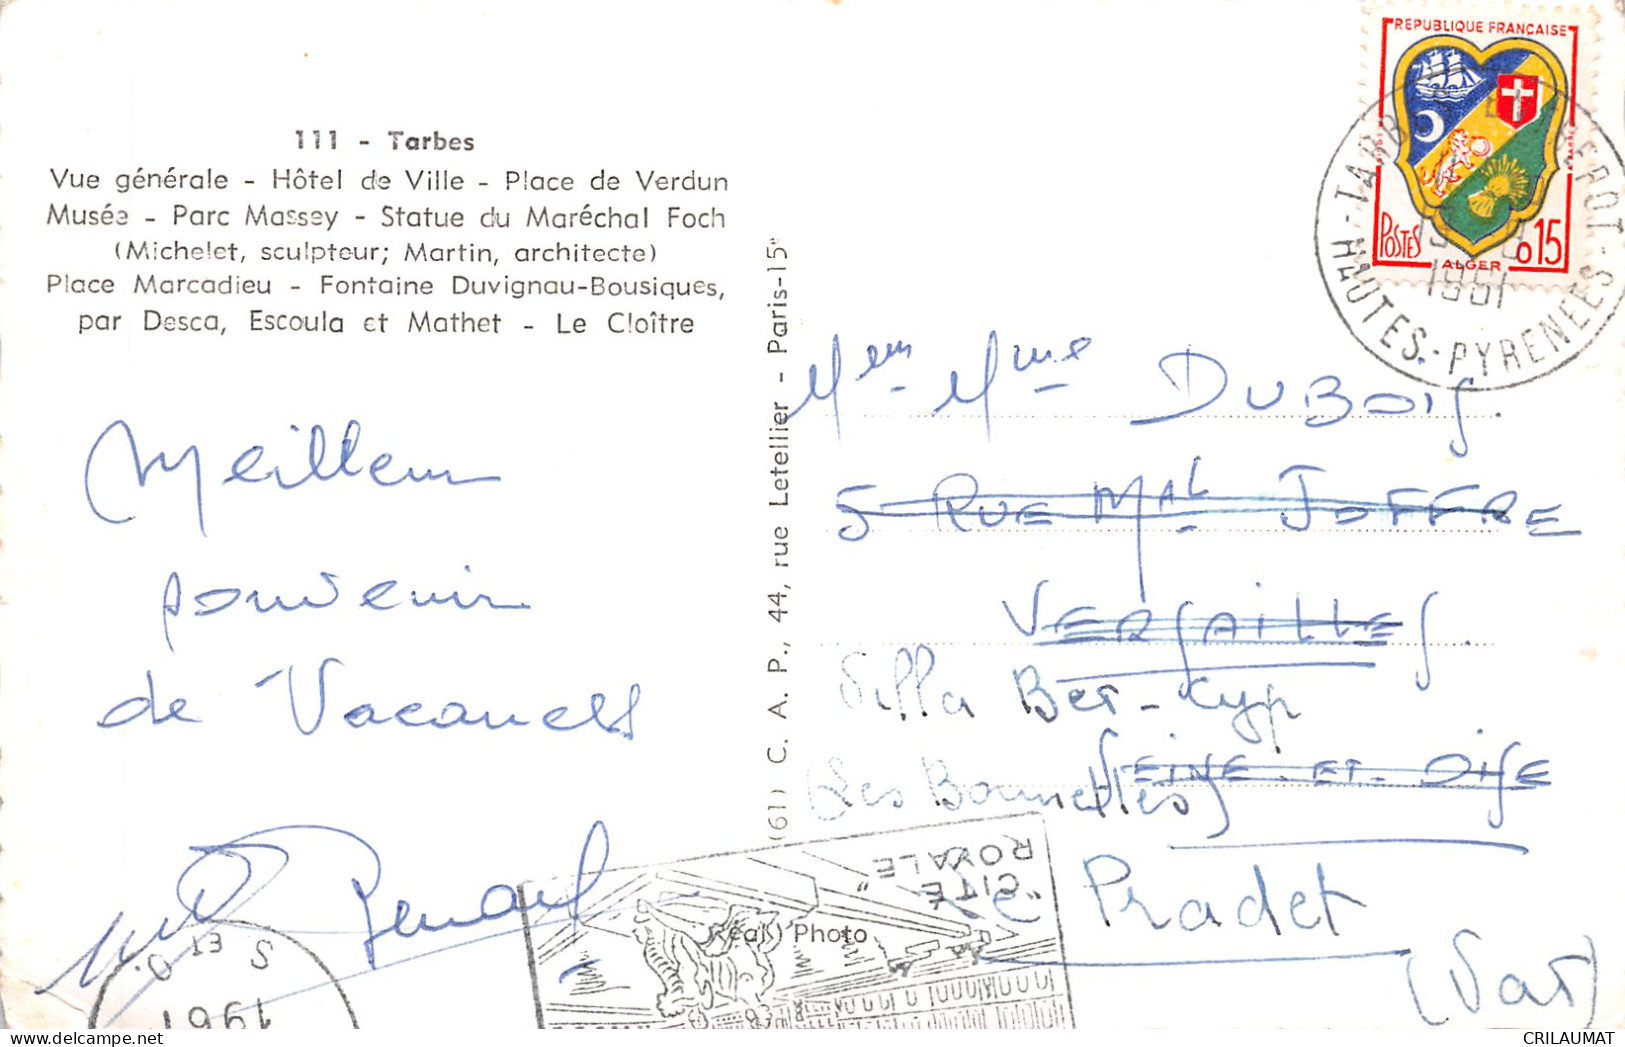 111 - Tarbes
Vue générale - Hôtel de Ville - Place de Verdun
Musée - Parc Massey - Statue du Maréchal Foch
(Michelet, sculpteur; Martin, architecte)
Place Marcadieu - Fontaine Duvignau-Bousiques,
par Desca, Escoula et Mathet - Le Cloître
Meilleur
souvenir
de Vacances
Renard
(61) C. A. P., 44, rue Letellier - Paris-15e
REPUBLIQUE FRANÇAISE
POSTES
ALGER
0,15
TARBES
1961
HAUTES-PYRENEES
Mme DUBOIS
5 RUE MAL JOFFRE
VERSAILLES
Villa Bet-Kyp
SEINE-ET-OISE
(Les Bonnettes)
Le Pradet
(Var)
"CITE
ROYALE"
Real Photo
S. ET O.
1961
CRILAUMAT